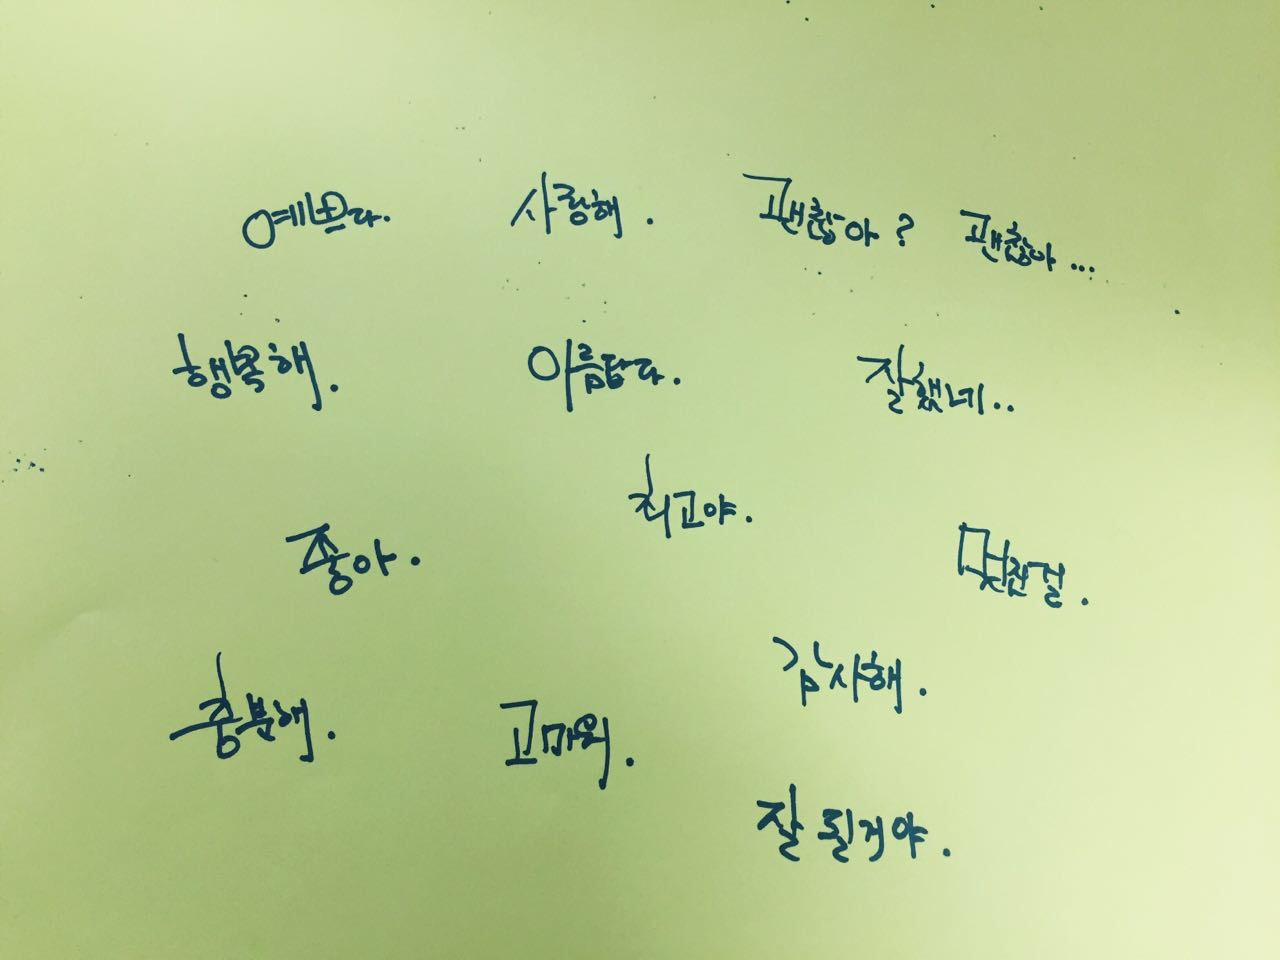 예쁘다. 사랑해. 괜찮아? 괜찮아...
행복해. 아름답다. 잘했네..
최고야.
좋아. 멋진걸.
감사해.
충분해. 고마워.
잘 될거야.